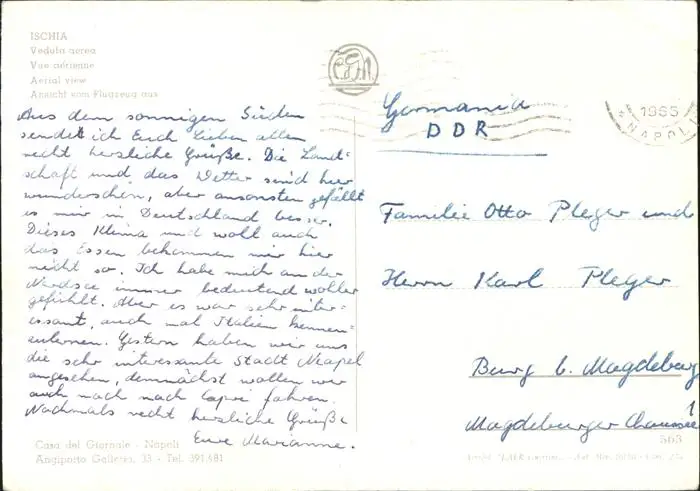 ISCHIA
Veduta aerea
Vue aérienne
Aerial view
Ansicht vom Flugzeug aus
Aus dem sonnigen Süden
sendet ich Euch lieben allen
recht herzliche Grüße. Die Land-
schaft und das Wetter sind hier
wunderschön, aber ansonsten gefällt
es mir in Deutschland besser.
Dieses Klima und wohl auch
das Essen bekommen mir hier
nicht so. Ich habe mich an der
Nordsee immer bedeutend wohler
gefühlt. Aber es war sehr inter-
essant, auch mal Italien kennen-
zulernen. Gestern haben wir uns
die sehr interessante Stadt Neapel
angesehen, demnächst wollen wir
auch noch nach Capri fahren.
Nochmals recht herzliche Grüße
Eure Marianne.
Casa del Giornale - Napoli
Angiporto Galleria, 33 - Tel. 391.481
1955
NAPOLI
Germania
DDR
Familie Otto Pleger und
Herrn Karl Pleger
Burg b. Magdeburg
Magdeburger Chaussee
1
563